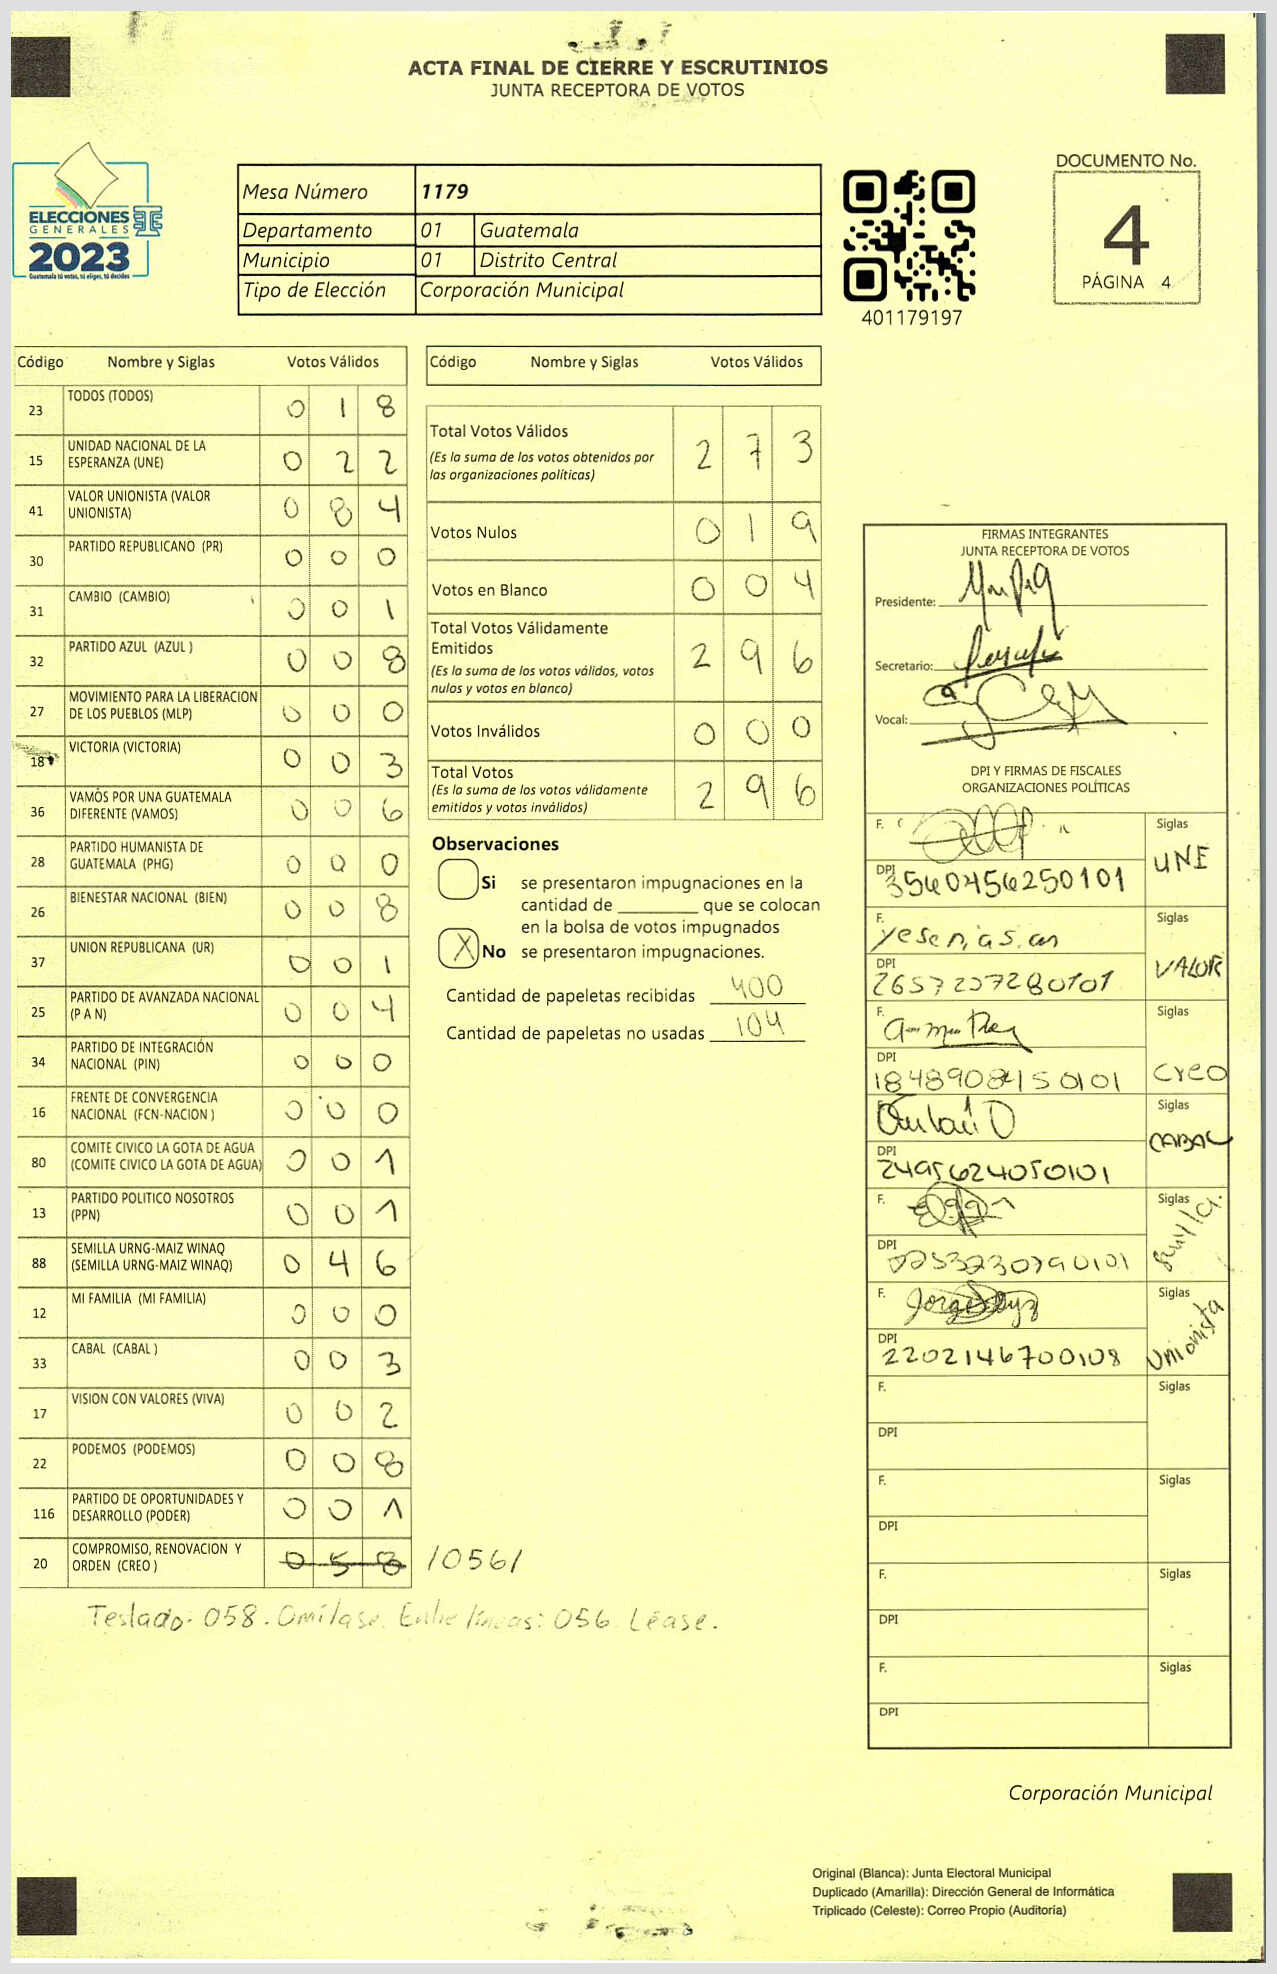 ACTA FINAL DE CIERRE Y ESCRUTINIOS
JUNTA RECEPTORA DE VOTOS
ELECCIONES
GENERALES
2023
Guatemala tú votas, tú eliges, tú decides
Mesa Número 1179
Departamento 01 Guatemala
Municipio 01 Distrito Central
Tipo de Elección Corporación Municipal
401179197
DOCUMENTO No.
4
PÁGINA 4
Código Nombre y Siglas Votos Válidos
23 TODOS (TODOS) 0 1 8
15 UNIDAD NACIONAL DE LA
ESPERANZA (UNE) 0 2 2
41 VALOR UNIONISTA (VALOR
UNIONISTA) 0 8 4
30 PARTIDO REPUBLICANO (PR) 0 0 0
31 CAMBIO (CAMBIO) 0 0 1
32 PARTIDO AZUL (AZUL ) 0 0 8
27 MOVIMIENTO PARA LA LIBERACION
DE LOS PUEBLOS (MLP) 0 0 0
18 VICTORIA (VICTORIA) 0 0 3
36 VAMOS POR UNA GUATEMALA
DIFERENTE (VAMOS) 0 0 6
28 PARTIDO HUMANISTA DE
GUATEMALA (PHG) 0 0 0
26 BIENESTAR NACIONAL (BIEN) 0 0 8
37 UNION REPUBLICANA (UR) 0 0 1
25 PARTIDO DE AVANZADA NACIONAL
(P A N) 0 0 4
34 PARTIDO DE INTEGRACIÓN
NACIONAL (PIN) 0 0 0
16 FRENTE DE CONVERGENCIA
NACIONAL (FCN-NACION ) 0 0 0
80 COMITE CIVICO LA GOTA DE AGUA
(COMITE CIVICO LA GOTA DE AGUA) 0 0 1
13 PARTIDO POLITICO NOSOTROS
(PPN) 0 0 1
88 SEMILLA URNG-MAIZ WINAQ
(SEMILLA URNG-MAIZ WINAQ) 0 4 6
12 MI FAMILIA (MI FAMILIA) 0 0 0
33 CABAL (CABAL ) 0 0 3
17 VISION CON VALORES (VIVA) 0 0 2
22 PODEMOS (PODEMOS) 0 0 8
116 PARTIDO DE OPORTUNIDADES Y
DESARROLLO (PODER) 0 0 1
20 COMPROMISO, RENOVACION Y
ORDEN (CREO ) 0 5 8 /056/
Teslado: 058. Omítase. Entre líneas: 056. Léase.
Código Nombre y Siglas Votos Válidos
Total Votos Válidos
(Es la suma de los votos obtenidos por
las organizaciones políticas) 2 7 3
Votos Nulos 0 1 9
Votos en Blanco 0 0 4
Total Votos Válidamente
Emitidos
(Es la suma de los votos válidos, votos
nulos y votos en blanco) 2 9 6
Votos Inválidos 0 0 0
Total Votos
(Es la suma de los votos válidamente
emitidos y votos inválidos) 2 9 6
Observaciones
Si se presentaron impugnaciones en la
cantidad de ________ que se colocan
en la bolsa de votos impugnados
X No se presentaron impugnaciones.
Cantidad de papeletas recibidas 400
Cantidad de papeletas no usadas 104
FIRMAS INTEGRANTES
JUNTA RECEPTORA DE VOTOS
Presidente:
Secretario:
Vocal:
DPI Y FIRMAS DE FISCALES
ORGANIZACIONES POLÍTICAS
F. Siglas
DPI 3560456250101 UNE
F. Siglas
DPI 2657257280101 VALOR
F. Siglas
DPI 1848908450101 Creo
F. Siglas
DPI 2495624050101 CABAL
F. Siglas
DPI
F. Siglas
DPI 2202146700108 Unionista
F. Siglas
DPI
F. Siglas
DPI
F. Siglas
DPI
F. Siglas
DPI
Corporación Municipal
Original (Blanca): Junta Electoral Municipal
Duplicado (Amarilla): Dirección General de Informática
Triplicado (Celeste): Correo Propio (Auditoría)